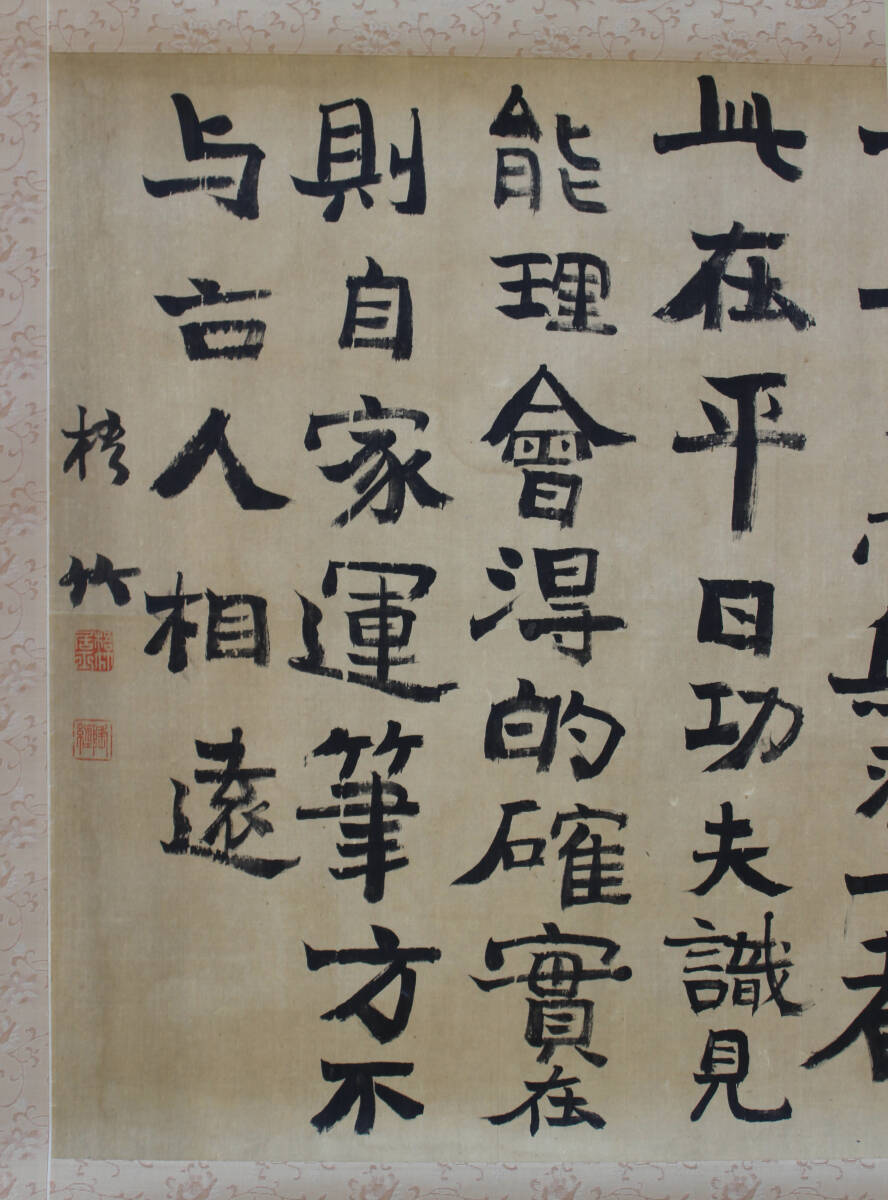 此在平日功夫識見
能理會得的確實在
則自家運筆方不
与古人相遠
梧竹